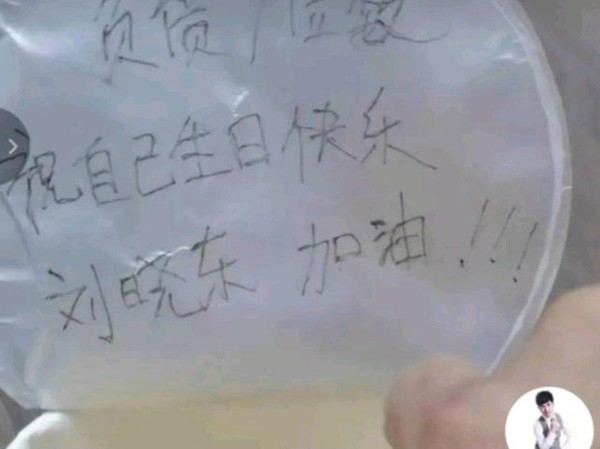 负债1
祝自己生日快乐
刘晓东 加油!!!